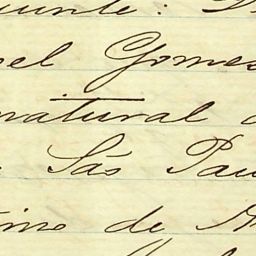 uinte:
el Gomes
natural
São Pau
ino de